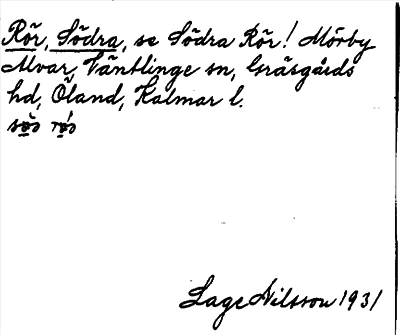 Rör, Södra, se Södra Rör! Mörby
Alvar, Ventlinge sn, Gräsgårds
hd, Öland, Kalmar l.
Lage Nilsson 1931